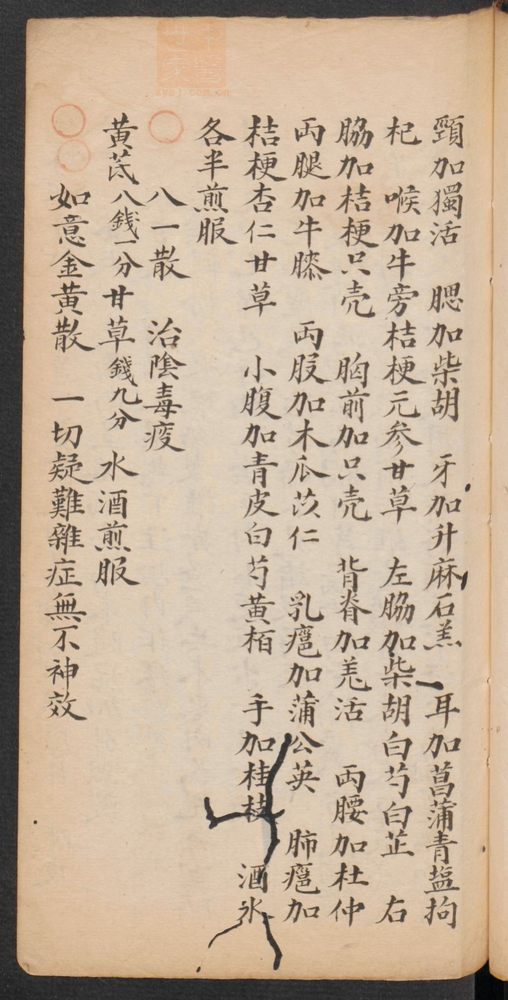 頸加獨活　腮加柴胡　牙加升麻石羔　耳加菖蒲青塩拘
杞　喉加牛旁桔梗元参甘草　左脇加柴胡白芍白芷　右
脇加桔梗只壳　胸前加只壳　背脊加羌活　両腰加杜仲
両腿加牛膝　両股加木瓜苡仁　乳癰加蒲公英　肺癰加
桔梗杏仁甘草　小腹加青皮白芍黄栢　手加桂枝　酒水
各半煎服
八一散　治陰毒疫
黄芪八錢一分甘草錢九分　水酒煎服
如意金黄散　一切疑難雜症無不神效